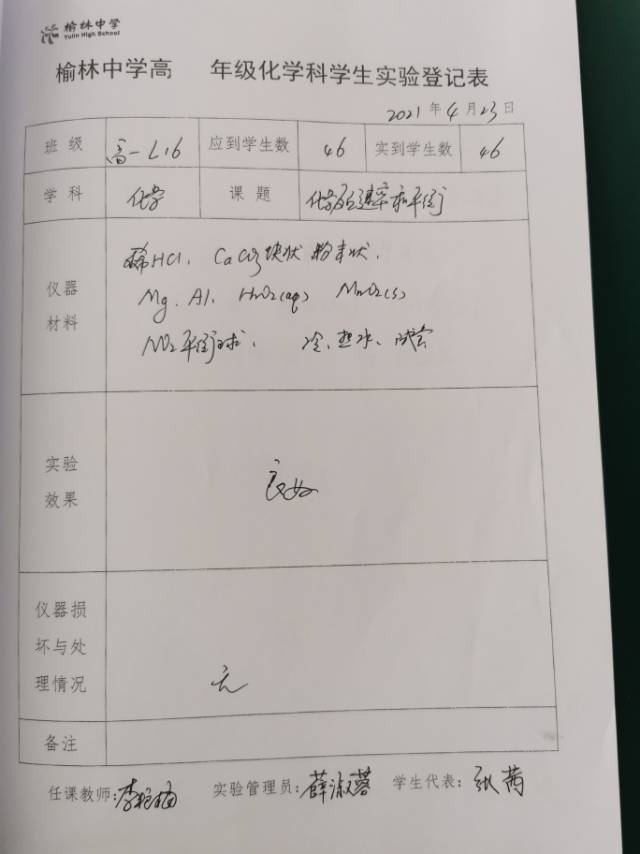 榆林中学
Yulin High School
榆林中学高 年级化学科学生实验登记表
2021 年 4 月 23 日
班 级 高一L16 应到学生数 46 实到学生数 46
学 科 化学 课 题 化学反应速率和平衡
仪器
材料
稀HCl、CaCO3块状 粉末状、
Mg、Al、H2O2(aq) MnO2(s)
NO2平衡球、 冷、热水、试管
实验
效果
良好
仪器损
坏与处
理情况
无
备注
任课教师: 实验管理员:薛淑蓉 学生代表:张茜